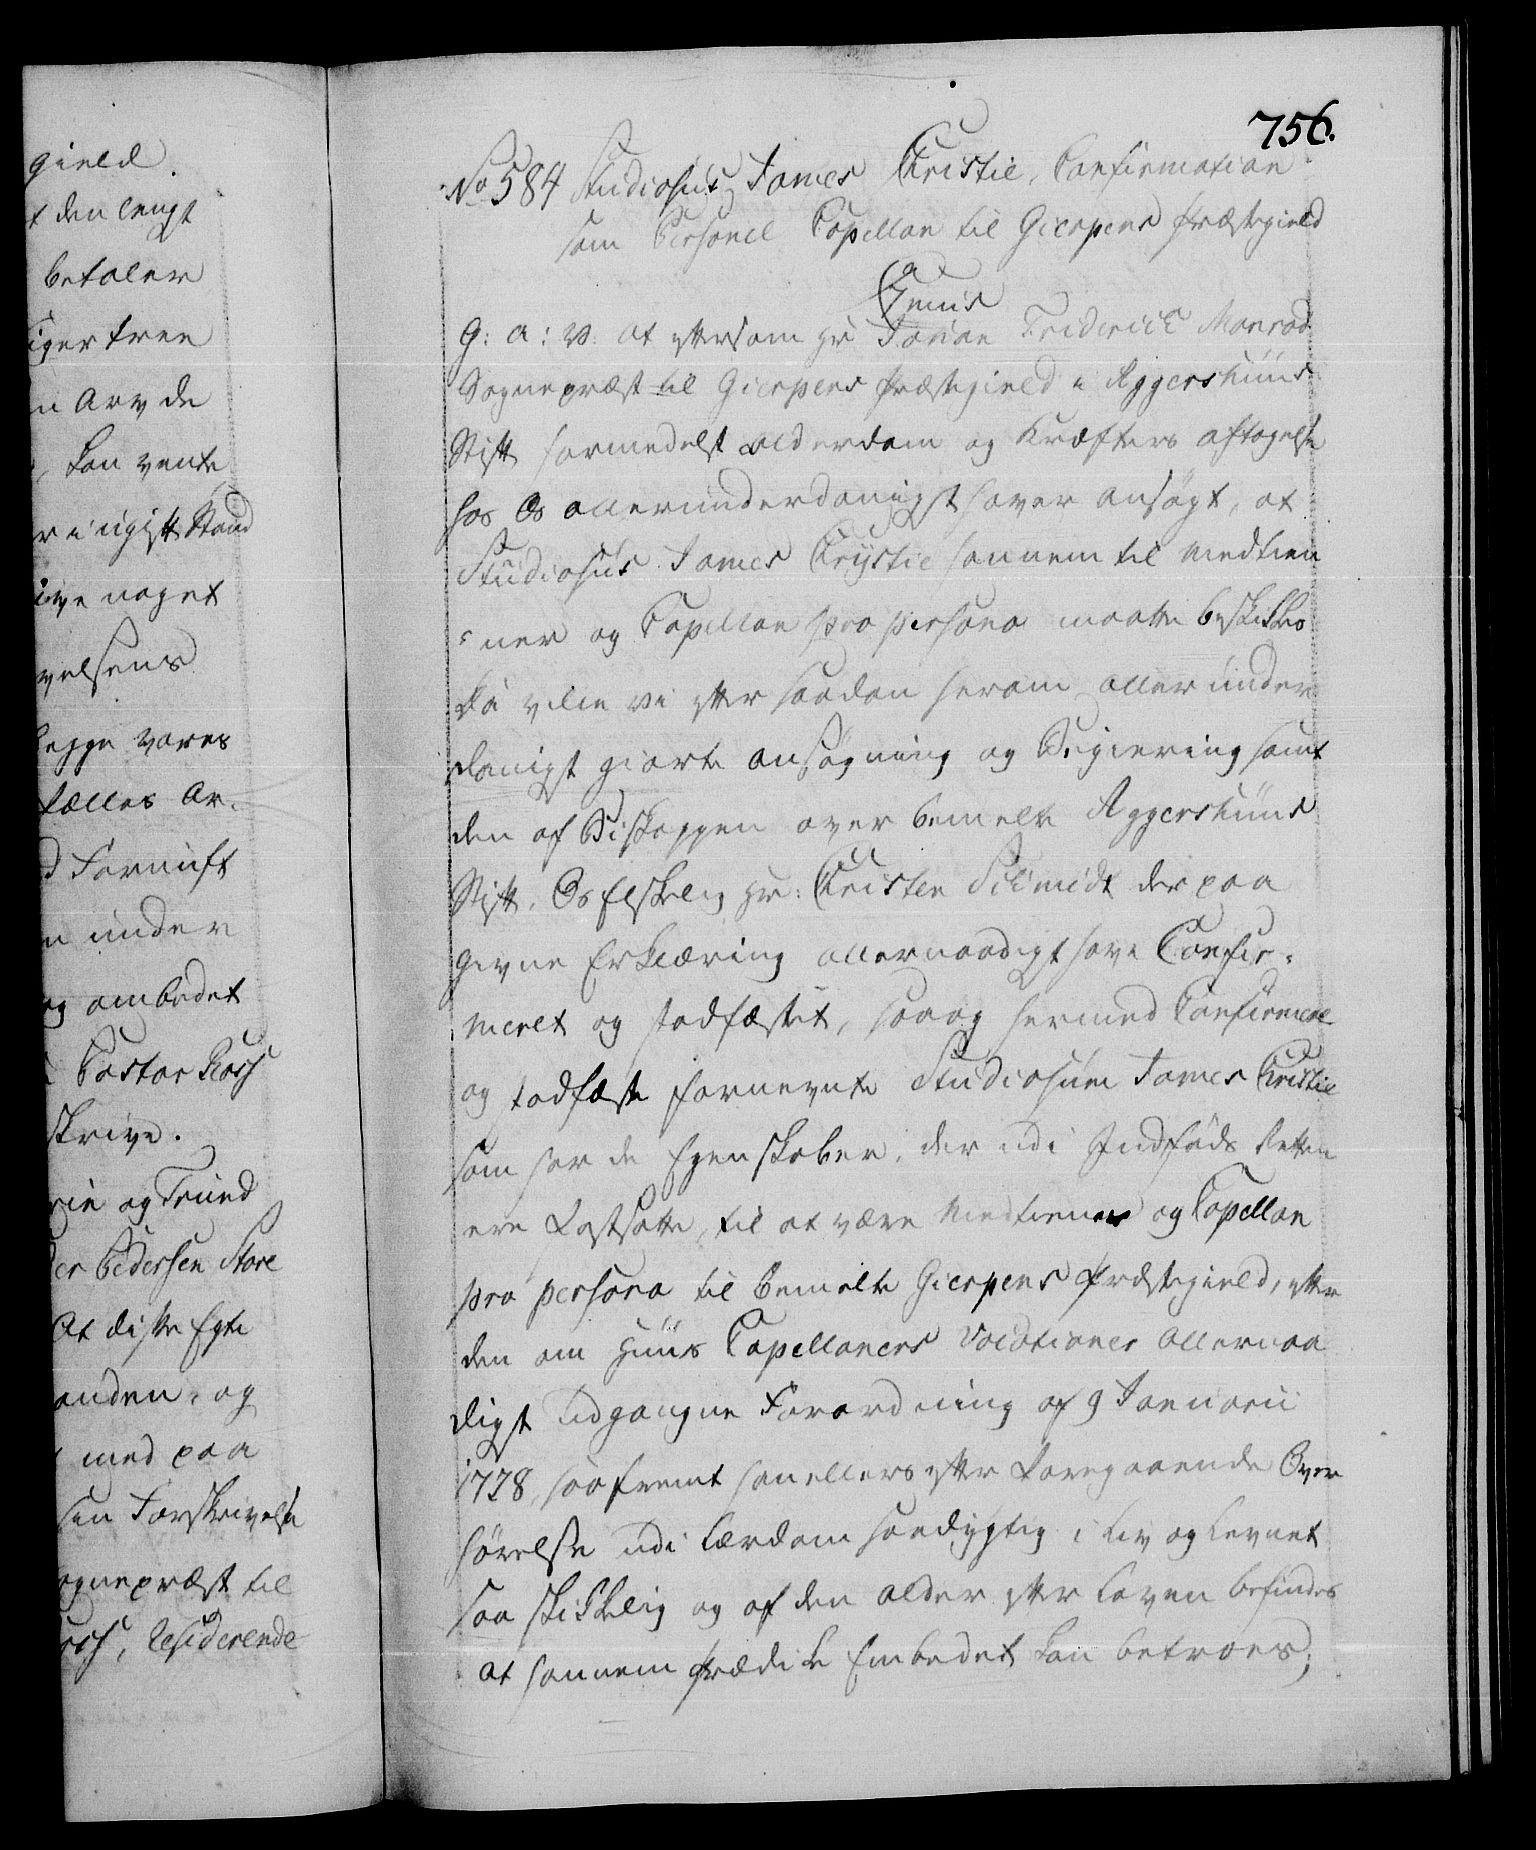 gield.
t den lengst
betaler
iger tree
n Arv de
, kan vente
r i ugift Stand
ive noget
velsens
legge vores
fælles Ar-
d Fornuft
n under
og ombedet
Pastor
skrive.
rie og Trund
er Pedersen Store
At diske Egte
anden, og
med paa
sen Forskrivelse
ognepræst til
Residerende
756.
No 584 Studiosus, James Christie, Confirmation
som Personel Capellan til Gierpens Præstegield
G: a: v: at eftersom Hr Johan Friderich Monrad
Sognepræst til Gierpens Præstegield i Aggershuus
Stift formedelst alderdom og Kræfters aftagelse
hos Os allerunderdanigst haver ansøgt, at
Studiosus James Crystie hannem til medtien
-ner og Capellan pro persona maatte beskikkes
Da ville vi efter saadan herom allerunder
danigst giorte ansøgning og Begiering samt
den af Biskoppen over bemelte Aggershuus
Stift, Os Elskelig Hr: Christen Schmidt der paa
givne Erklæring allernaadigst have Confir-
meret og stadfæstet, saa og hermed Confirmere
og stadfæste fornevnte Studiosum James Christie
som har de Egenskaber, der udi Indføds Retten
ere Fastsatte, til at være Medtiener og Capellan
pro persona til bemelte Gierpens Præstegield, efter
den om Huus Capellaners Vocationer allernaa
digst udgangne Forordning af 9 Januarii
1778, saafremt han ellers efter foregaaende Over
hørelse udi Lærdom saa dygtig i Liv og Levnet
saa skikkelig og af den alder efter Loven befindes
at hannem Prædike Embedet kan betroes;